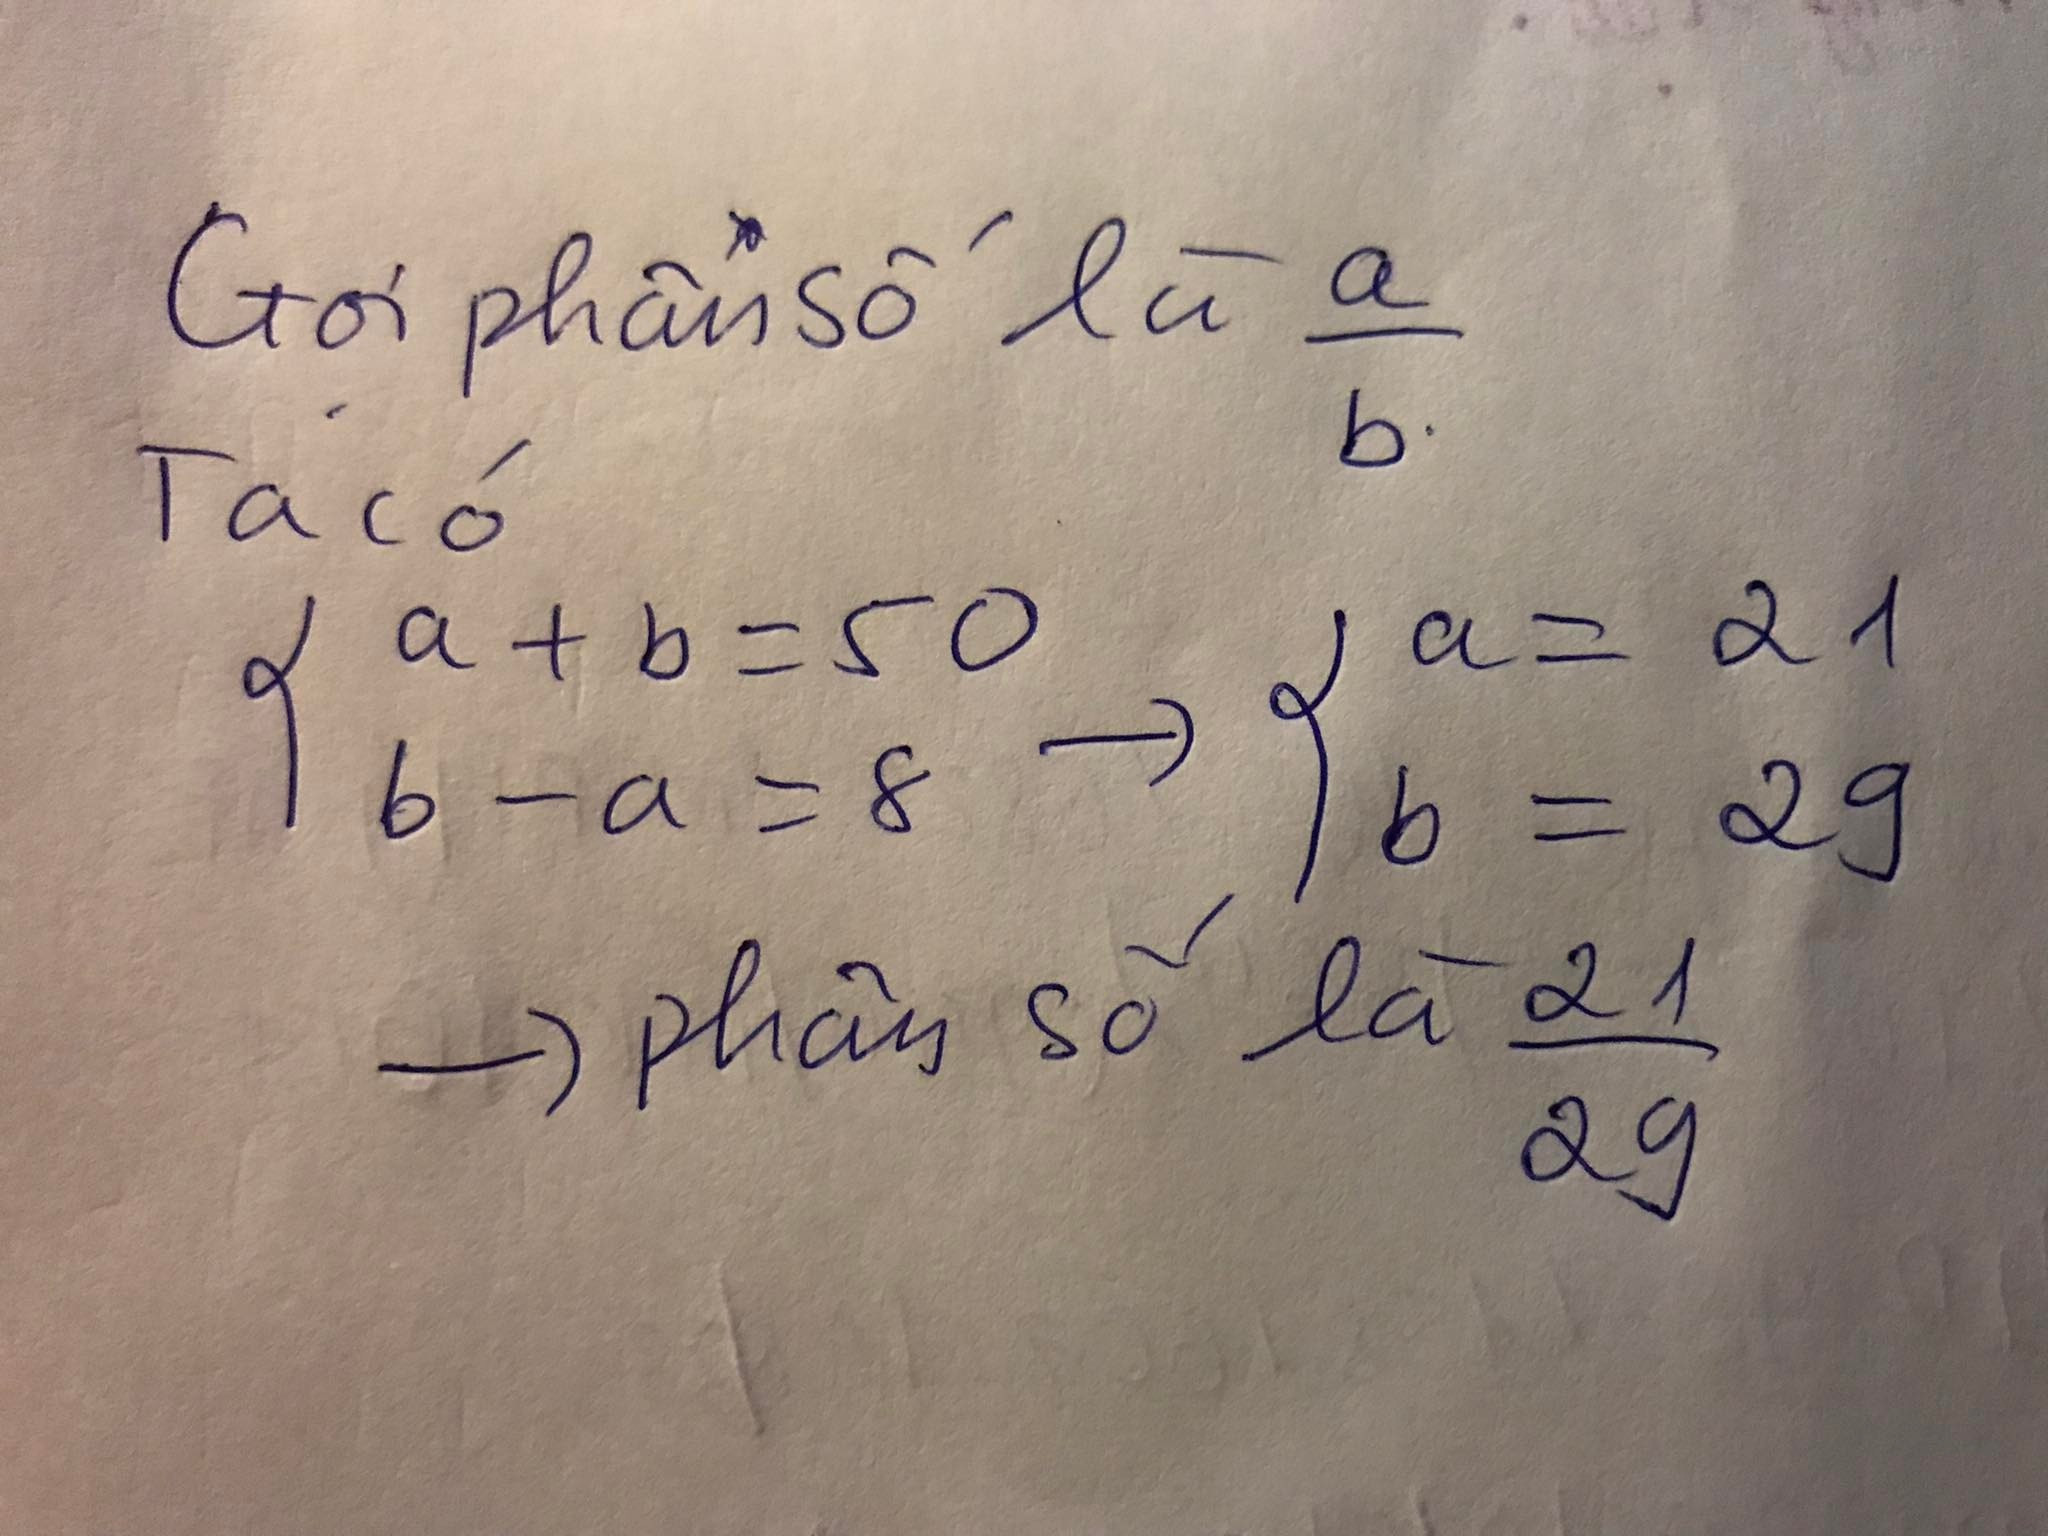 Gọi phân số là a/b.
Ta có
{ a + b = 50 → { a = 21
{ b - a = 8 { b = 29
→ phân số là 21/29